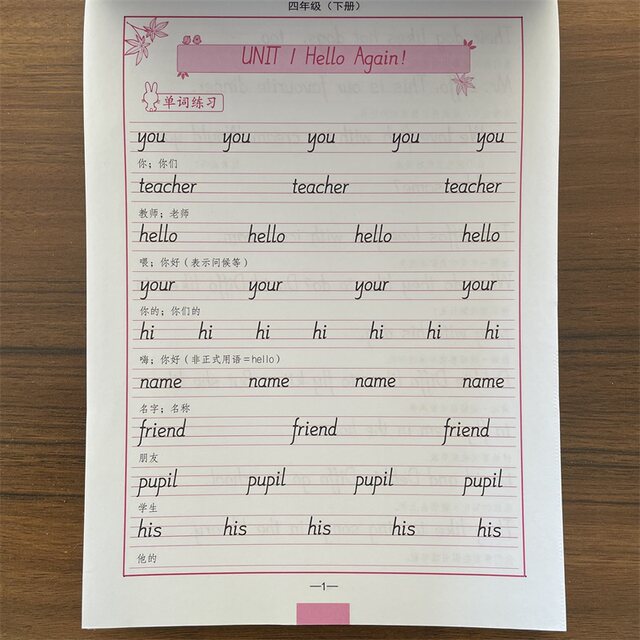 四年级（下册）
UNIT 1 Hello Again!
单词练习
you you you you you
你；你们
teacher teacher teacher
教师；老师
hello hello hello hello
喂；你好（表示问候等）
your your your your
你的；你们的
hi hi hi hi hi hi hi
嗨；你好（非正式用语＝hello）
name name name name
名字；名称
friend friend friend
朋友
pupil pupil pupil pupil
学生
his his his his his
他的
—1—